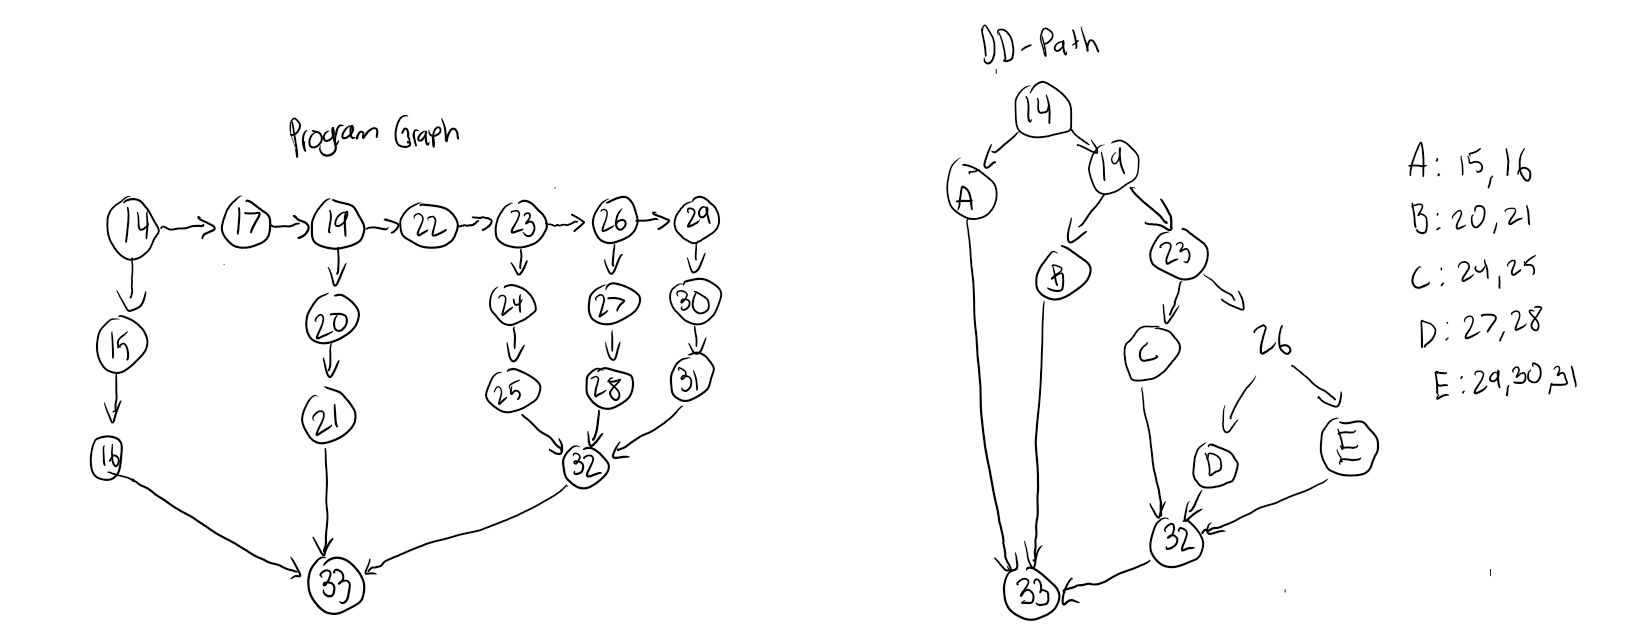 Program Graph
14 17 19 22 23 26 29
15 20 24 27 30
16 21 25 28 31
32
33
DD-Path
14
A 19
B 23
C 26
D E
32
33
A: 15,16
B: 20,21
C: 24,25
D: 27,28
E: 29,30,31